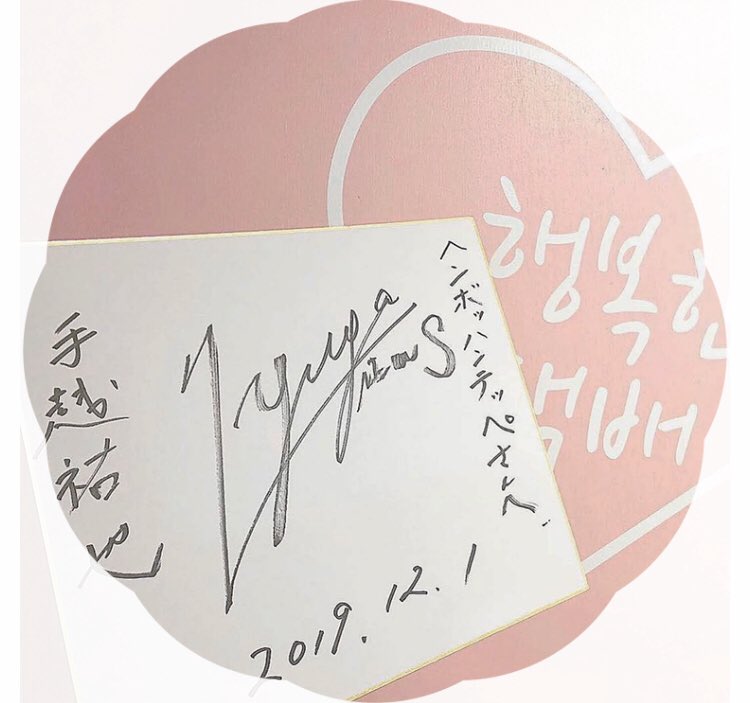 행복한
택배
ヘンボッハンテッペさんへ
NEWS
手越祐也
2019.12.1